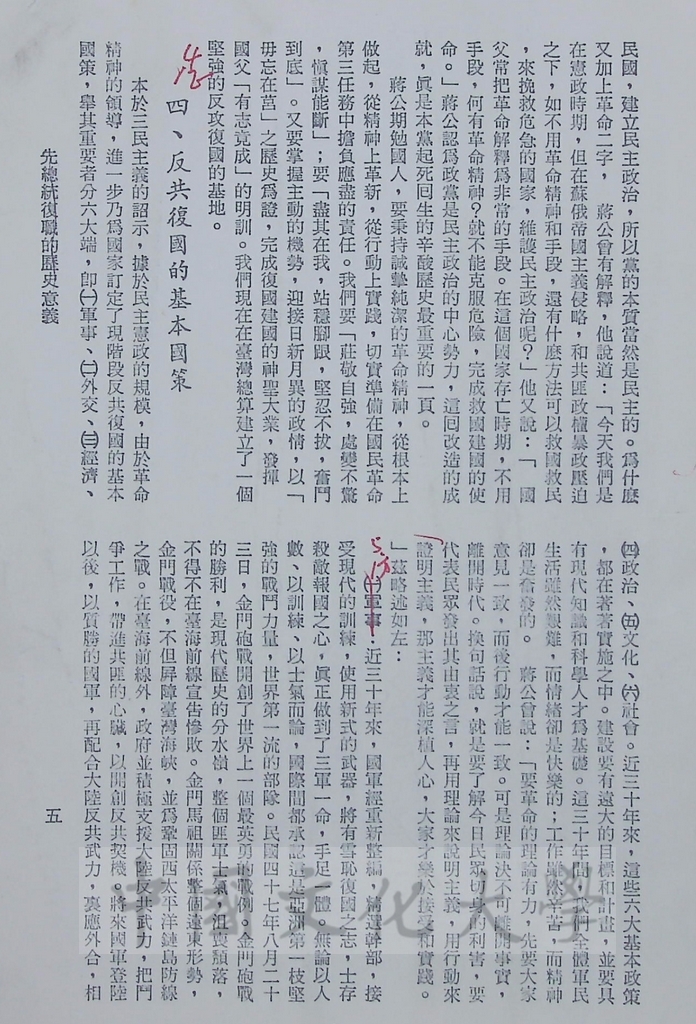 民國，建立民主政治，所以黨的本質當然是民主的。爲什麼
又加上革命二字，　蔣公曾有解釋，他說道：「今天我們是
在憲政時期，但在蘇俄帝國主義侵略，和共匪政權暴政壓迫
之下，如不用革命精神和手段，還有什麼方法可以救國救民
，來挽救危急的國家，維護民主政治呢？」他又說：「　國
父常把革命解釋爲非常的手段。在這個國家存亡時期，不用
手段，何有革命精神？就不能克服危險，完成救國建國的使
命。」蔣公認爲政黨是民主政治的中心勢力，這回改造的成
就，眞是本黨起死回生的辛酸歷史最重要的一頁。
蔣公期勉國人，要秉持誠摯純潔的革命精神，從根本上
做起，從精神上革新，從行動上實踐，切實準備在國民革命
第三任務中擔負應盡的責任。我們要「莊敬自強，處變不驚
，愼謀能斷」；要「盡其在我，站穩腳跟，堅忍不拔，奮鬥
到底」。又要掌握主動的機勢，迎接日新月異的政情，以「
毋忘在莒」之歷史爲證，完成復國建國的神聖大業，發揮
國父「有志竟成」的明訓。我們現在在臺灣總算建立了一個
堅強的反攻復國的基地。
四、反共復國的基本國策
本於三民主義的詔示，據於民主憲政的規模，由於革命
精神的領導，進一步乃爲國家訂定了現階段反共復國的基本
國策，舉其重要者分六大端，卽㈠軍事、㈡外交、㈢經濟、
先總統復職的歷史意義
㈣政治、㈤文化、㈥社會。近三十年來，這些六大基本政策
，都在著著實施之中。建設要有遠大的目標和計畫，並要具
有現代知識和科學人才爲基礎。這三十年間，我們全體軍民
生活雖然艱難，而情緒卻是快樂的；工作雖然辛苦，而精神
卻是奮發的。　蔣公曾說：「要革命的理論有力，先要大家
意見一致，而後行動才能一致。可是理論決不可離開事實，
離開時代。換句話說，就是要了解今日民眾切身的利害，要
代表民眾發出其由衷之言，再用理論來說明主義，用行動來
證明主義，那主義才能深植人心，大家才樂於接受和實踐。
」茲略述如左：
㈠軍事：近三十年來，國軍經重新整編，精選幹部，接
受現代的訓練，使用新式的武器，將有雪恥復國之志，士存
殺敵報國之心，眞正做到了三軍一命，手足一體。無論以人
數、以訓練、以士氣而論，國際間都承認這是亞洲第一枝堅
強的戰鬥力量，世界第一流的部隊。民國四十七年八月二十
三日，金門砲戰開創了世界上一個最英勇的戰例。金門砲戰
的勝利，是現代歷史的分水嶺，整個匪軍士氣，沮喪頹落，
不得不在臺海前線宣告慘敗。金門馬祖關係整個遠東形勢，
金門戰役，不但屏障臺灣海峽，並爲鞏固西太平洋鏈島防線
之戰。在臺海前線外，政府並積極支援大陸反共武力，把鬥
爭工作，帶進共匪的心臟，以開創反共契機。將來國軍登陸
以後，以質勝的國軍，再配合大陸反共武力，裏應外合，相
五
中國文化大學